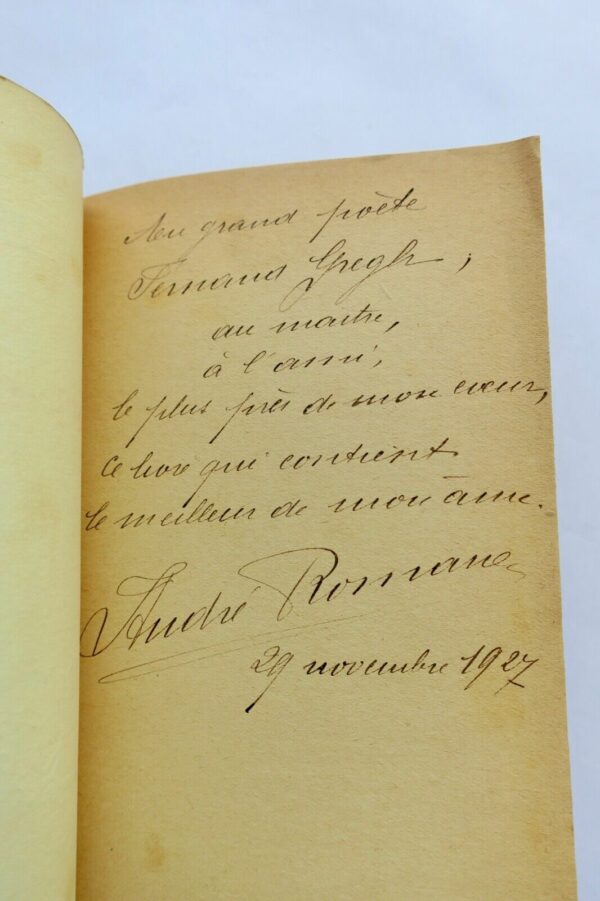 Au grand poète
Fernand Gregh,
au maitre,
à l'ami,
le plus près de mon cœur,
ce livre qui contient
le meilleur de mon âme.
André Romane
29 novembre 1927